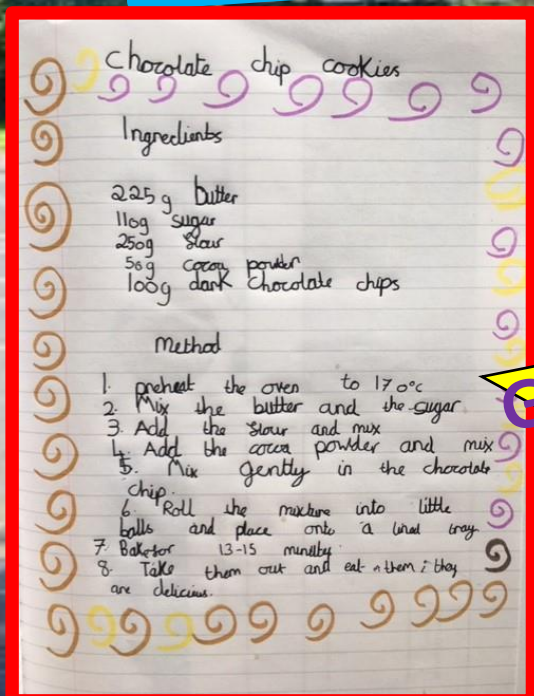 Chocolate chip cookies
Ingredients
225g butter
110g sugar
250g flour
50g cocoa powder
100g dark chocolate chips
Method
1. preheat the oven to 170°c
2. Mix the butter and the sugar
3. Add the flour and mix
4. Add the cocoa powder and mix
5. Mix gently in the chocolate
chip.
6. Roll the mixture into little
balls and place onto a lined tray
7. Bake for 13-15
8. Take them out and eat them; they
are delicius.